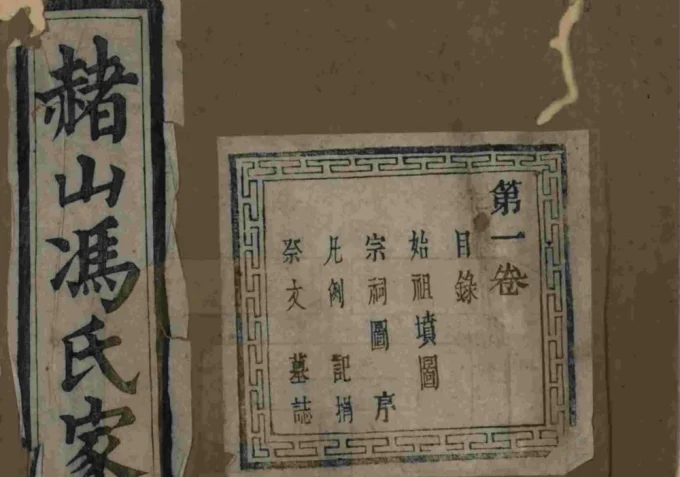 赭山馮氏家
第一卷
目錄
始祖墳圖
宗祠圖 序
凡例 記捐
祭文 墓誌